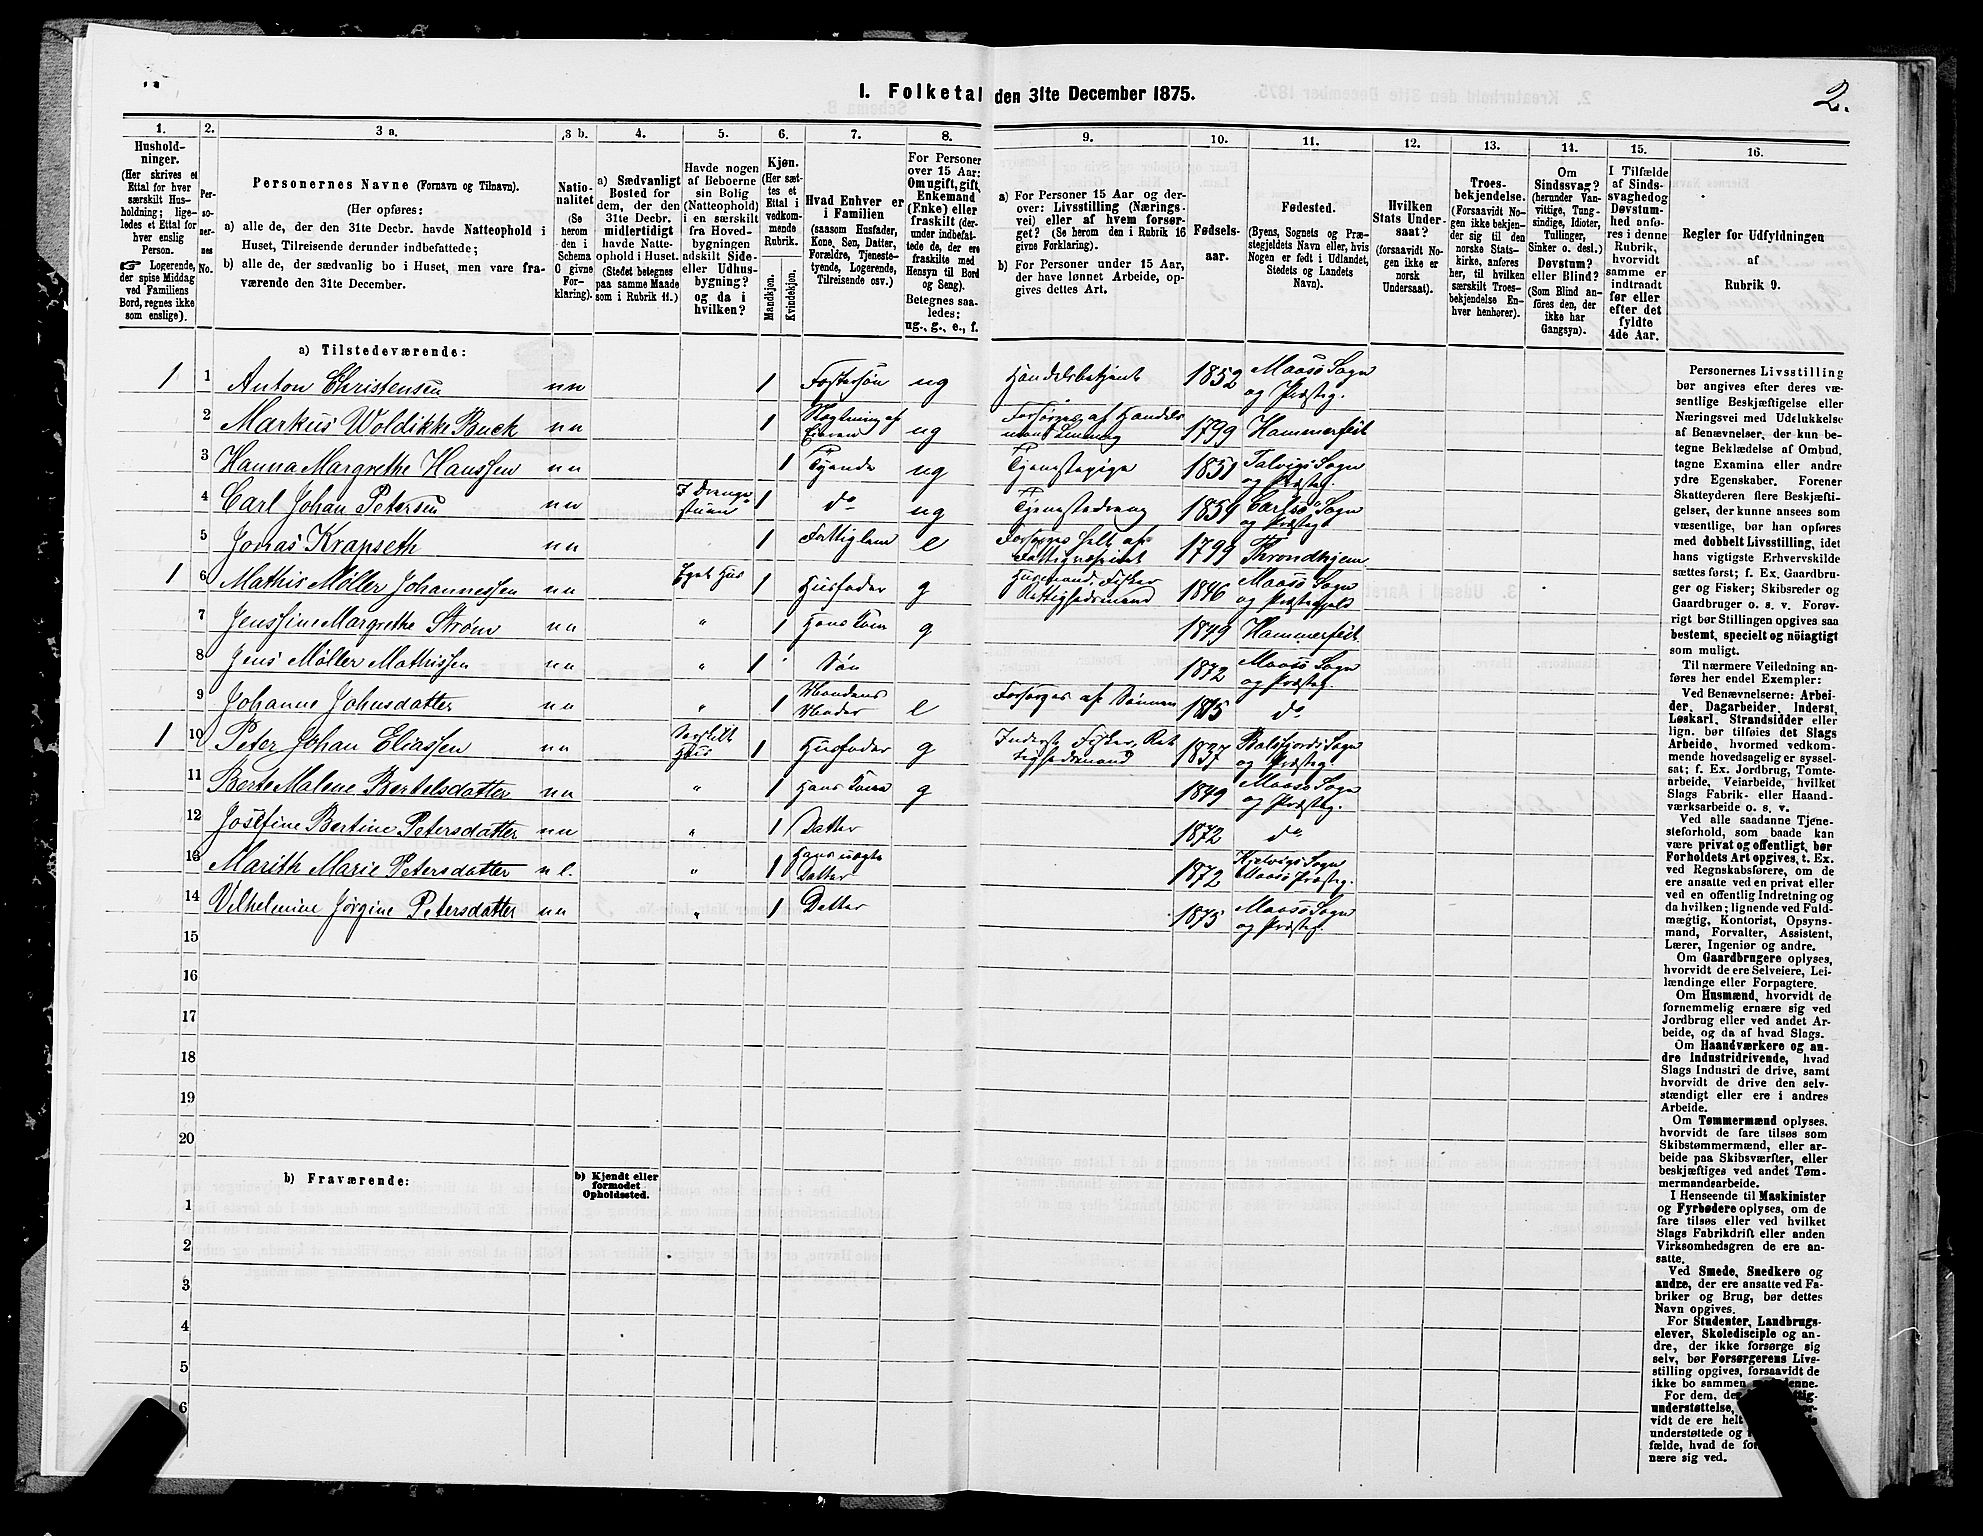 I. Folketal den 31te December 1875.
2.
1.
Hushold-
ninger.
(Her skrives et
Ettal for hver
særskilt Hus-
holdning; lige-
ledes et Ettal for
hver enslig
Person.
☞ Logerende,
der spise Middag
ved Familiens
Bord, regnes ikke
som enslige).
2.
Per-
so-
ner-
nes
No.
3 a.
Personernes Navne (Fornavn og Tilnavn).
(Her opføres:
a) alle de, der den 31te Decbr. havde Natteophold i
Huset, Tilreisende derunder indbefattede;
b) alle de, der sædvanlig bo i Huset, men vare fra-
værende den 31te December.
3 b.
Natio-
nalitet
(Se
herom
den i
Schema
C givne
For-
klaring).
4.
a) Sædvanligt
Bosted for
dem, der den
31te Decbr.
midlertidigt
havde Natte-
ophold i Huset.
(Stedet betegnes
paa samme Maade
som i Rubrik 11.)
5.
Havde nogen
af Beboerne
sin Bolig
(Natteophold)
i en særskilt
fra Hoved-
bygningen
adskilt Side-
eller Udhus-
bygning?
og da i
hvilken?
6.
Kjøn.
(Her sæt-
tes et
Ettal i
vedkom-
mende
Rubrik.
Mandkjøn.
Kvindekjøn.
7.
Hvad Enhver er
i Familien
(saasom Husfader,
Kone, Søn, Datter,
Forældre, Tjeneste-
tyende, Logerende,
Tilreisende osv.)
8.
For Personer
over 15 Aar:
Om ugift, gift,
Enkemand
(Enke) eller
fraskilt (der-
under indbefat-
tede de, der ere
fraskilte med
Hensyn til Bord
og Seng).
Betegnes saa-
ledes:
ug., g., e., f.
9.
a) For Personer 15 Aar og der-
over: Livsstilling (Nærings-
vei) eller af hvem forsør-
get? (Se herom den i Rubrik 16
givne Forklaring).
b) For Personer under 15 Aar,
der have lønnet Arbeide, op-
gives dettes Art.
10.
Fødsels-
aar.
11.
Fødested.
(Byens, Sognets og Præ-
stegjeldets Navn eller, hvis
Nogen er født i Udlandet,
Stedets og Landets
Navn).
12.
Hvilken
Stats Under-
saat?
(forsaavidt No-
gen ikke er
norsk
Undersaat).
13.
Troes-
bekjendelse.
(Forsaavidt No-
gen ikke bekjen-
der sig til den
norske Stats-
kirke, anføres
her, til hvilken
særskilt Troes-
bekjendelse En-
hver henhører).
14.
Om
Sindssvag?
(herunder Van-
vittige, Tung-
sindige, Idioter,
Tullinger,
Sinker o. desl.)
Døvstum?
eller Blind?
(Som Blind an-
føres den, der
ikke har
Gangsyn).
15.
I Tilfælde
af Sinds-
svaghed og
Døvstum-
hed anfø-
res i denne
Rubrik,
hvorvidt
samme er
indtraadt
før eller
efter det
fyldte
4de Aar.
16.
Regler for Udfyldningen
af
Rubrik 9.
a) Tilstedeværende:
1 1 Anton Christensen nn 1 Fostersøn ug Handelsbetjent 1852 Maasø Sogn
og Præsteg.
2 Markus Woldikke Buck nn 1 Slægtning af
ug Forsørges af Handels
mand 1799 Hammerfest
3 Hanna Margrethe Hanssen nn 1 Tyende ug Tjenestepige 1851 Talvigs Sogn
og Præsteg.
4 Carl Johan Petersen nn I Drenge
stuen 1 do ug Tjenestedreng 1859 Carlsø Sogn
og Præsteg
5 Jonas Krapseth nn 1 Fattiglem e Forsørges helt af
Fattigvæsenet 1799 Throndhjem
1 6 Mathis Møller Johannessen nn Eget Hus 1 Husfader g Husmand, Fisker
Rettighedsmand 1846 Maasø Sogn
og Præstegjeld
7 Jenssine Margrethe Strøm nn " 1 Hans Kone g 1849 Hammerfest
8 Jens Møller Mathissen nn " 1 Søn 1872 Maasø Sogn
og Præsteg.
9 Johanne Johnsdatter nn " 1 Mandens
Moder e Forsørges af Sønnen 1815 do
1 10 Peter Johan Eliassen nn Særskilt
Hus 1 Husfader g Inderst, Fisker, Ret
tighedsmand 1837 Balsfjords Sogn
og Præsteg.
11 Berte Malene Bertelsdatter nn " 1 Hans Kone g 1849 Maasø Sogn
og Præsteg.
12 Josefine Bertine Petersdatter nn " 1 Datter 1872 do
13 Marith Marie Petersdatter nl. " 1 Hans uægte
Datter 1872 Kjelvigs Sogn
Maasø Præsteg.
14 Vilhelmine Jørgine Petersdatter nn " 1 Datter 1875 Maasø Sogn
og Præsteg.
15
16
17
18
19
20
b) Fraværende:
b) Kjendt eller
formodet
Opholdssted.
1
2
3
4
5
6
Personernes Livsstilling
bør angives efter deres væ-
sentlige Beskjæftigelse eller
Næringsvei med Udelukkelse
af Benævnelser, der kun be-
tegne Beklædelse af Ombud,
tagne Examina eller andre
ydre Egenskaber. Forener
Skatteyderen flere Beskjæfti-
gelser, der kunne ansees som
væsentlige, bør han opføres
med dobbelt Livsstilling, idet
hans vigtigste Erhvervskilde
sættes først; f. Ex. Gaardbru-
ger og Fisker; Skibsreder og
Gaardbruger o. s. v. Forøv-
rigt bør Stillingen opgives saa
bestemt, specielt og nöiagtigt
som muligt.
Til nærmere Veiledning an-
føres her endel Exempler:
Ved Benævnelserne: Arbei-
der, Dagarbeider, Inderst,
Løskarl, Strandsidder eller
lign. bør tilføies det Slags
Arbeide, hvormed vedkom-
mende hovedsagelig er syssel-
sat; f. Ex. Jordbrug, Tomte-
arbeide, Veiarbeide, hvilket
Slags Fabrik- eller Haand-
værksarbeide o. s. v.
Ved alle saadanne Tjene-
steforhold, som baade kan
være privat og offentligt, bør
Forholdets Art opgives, t. Ex.
ved Regnskabsførere, om de
ere ansatte ved en privat eller
ved en offentlig Indretning og
da hvilken; lignende ved Fuld-
mægtig, Kontorist, Opsyns-
mand, Forvalter, Assistent,
Lærer, Ingeniør og andre.
Om Gaardbrugere oplyses,
hvorvidt de ere Selveiere, Lei-
lændinge eller Forpagtere.
Om Husmænd, hvorvidt de
fornemmelig ernære sig ved
Jordbrug eller ved andet Ar-
beide, og da af hvad Slags.
Om Haandværkere og an-
dre Industridrivende, hvad
Slags Industri de drive, samt
hvorvidt de drive den selv-
stændigt eller ere i andres
Arbeide.
Om Tømmermænd oplyses,
hvorvidt de fare tilsøs som
Skibstømmermænd, eller ar-
beide paa Skibsværfter, eller
beskjæftiges ved andet Tøm-
mermandsarbeide.
I Henseende til Maskinister
og Fyrbødere oplyses, om de
fare tilsøs eller ved hvilket
Slags Fabrikdrift eller anden
Virksomhedsgren de ere an-
satte.
Ved Smede, Snedkere og
andre, der ere ansatte ved Fa-
briker og Brug, bør dettes
Navn opgives.
For Studenter, Landbrugs-
elever, Skoledisciple og an-
dre, der ikke forsørge sig
selv, bør Forsørgerens Livs-
stilling opgives, forsaavidt de
ikke bo sammen denne.
For dem, der
understøttelse,
vidt de ere helt
understøttede og
fælde, hvad de
nære sig ved.